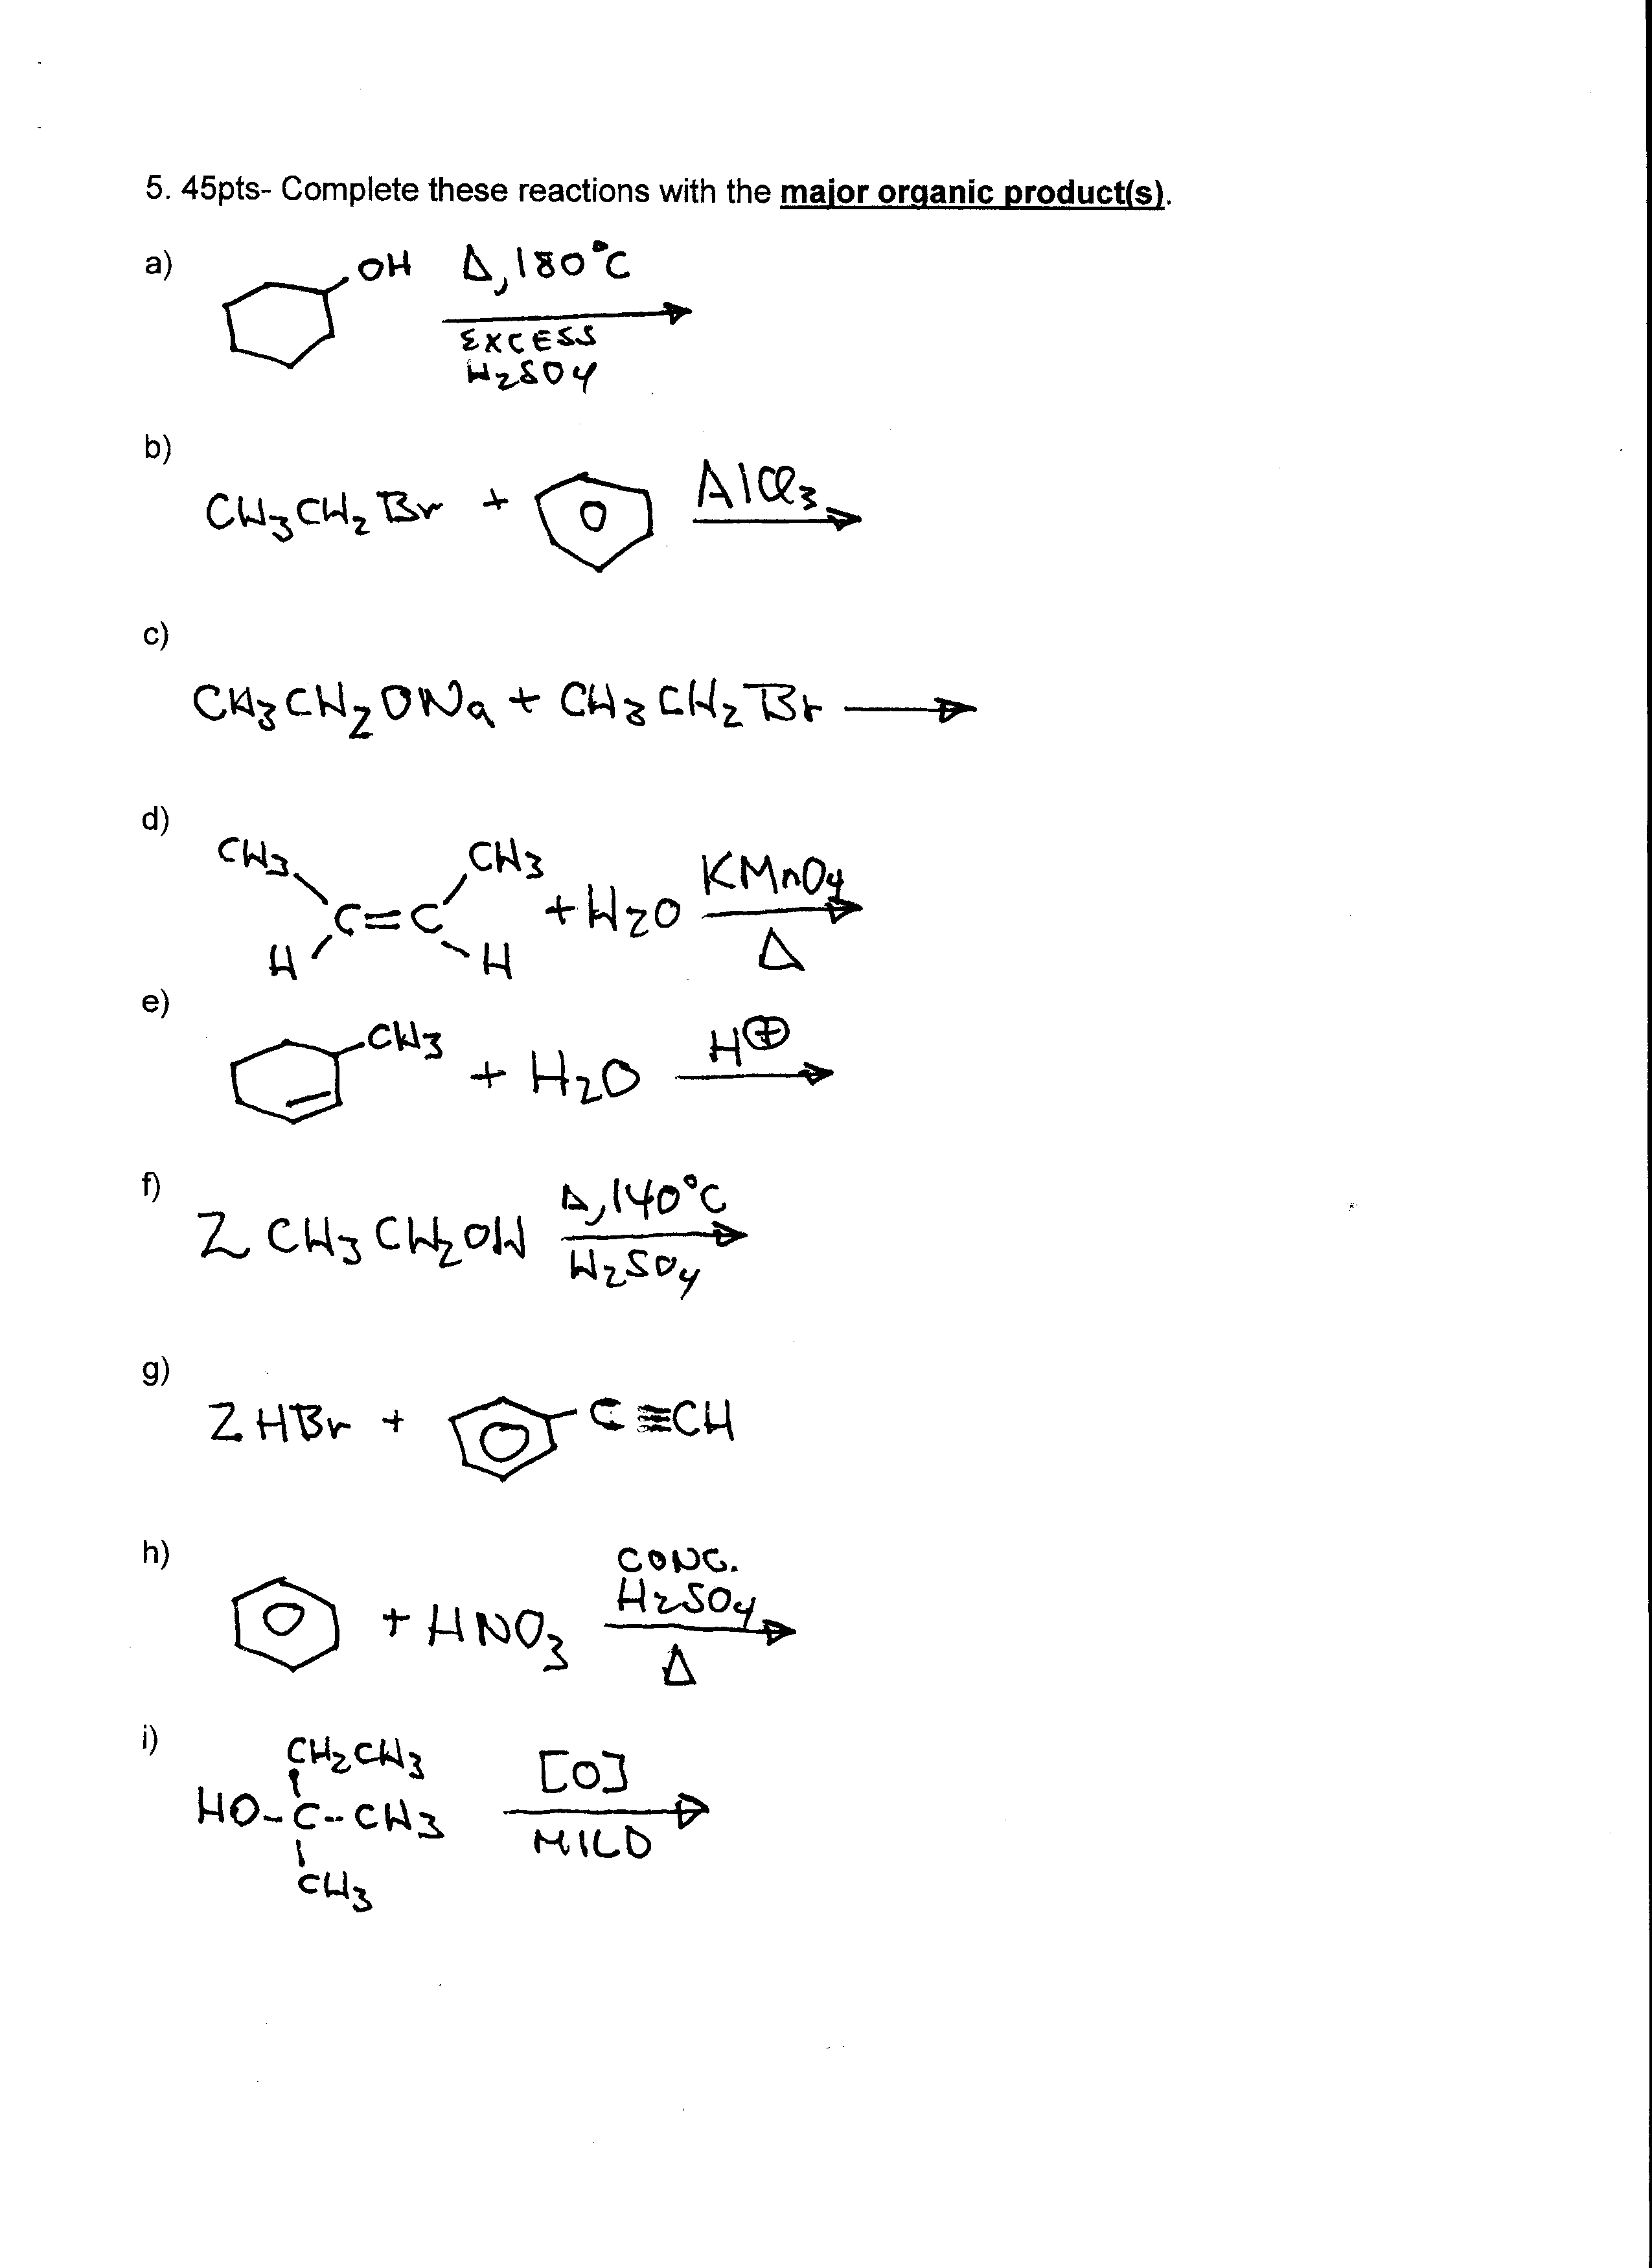 5. 45pts- Complete these reactions with the major organic product(s).
a)
OH Δ, 180°C
EXCESS
H2SO4
b)
CH3CH2Br + AlCl3
c)
CH3CH2ONa + CH3CH2Br
d)
CH3 CH3
C=C + H2O KMnO4
H H Δ
e)
CH3
+ H2O H⊕
f)
2 CH3CH2OH Δ, 140°C
H2SO4
g)
2 HBr + C≡CH
h)
+ HNO3 CONC.
H2SO4
Δ
i)
CH2CH3
HO-C-CH3 [O]
MILD
CH3